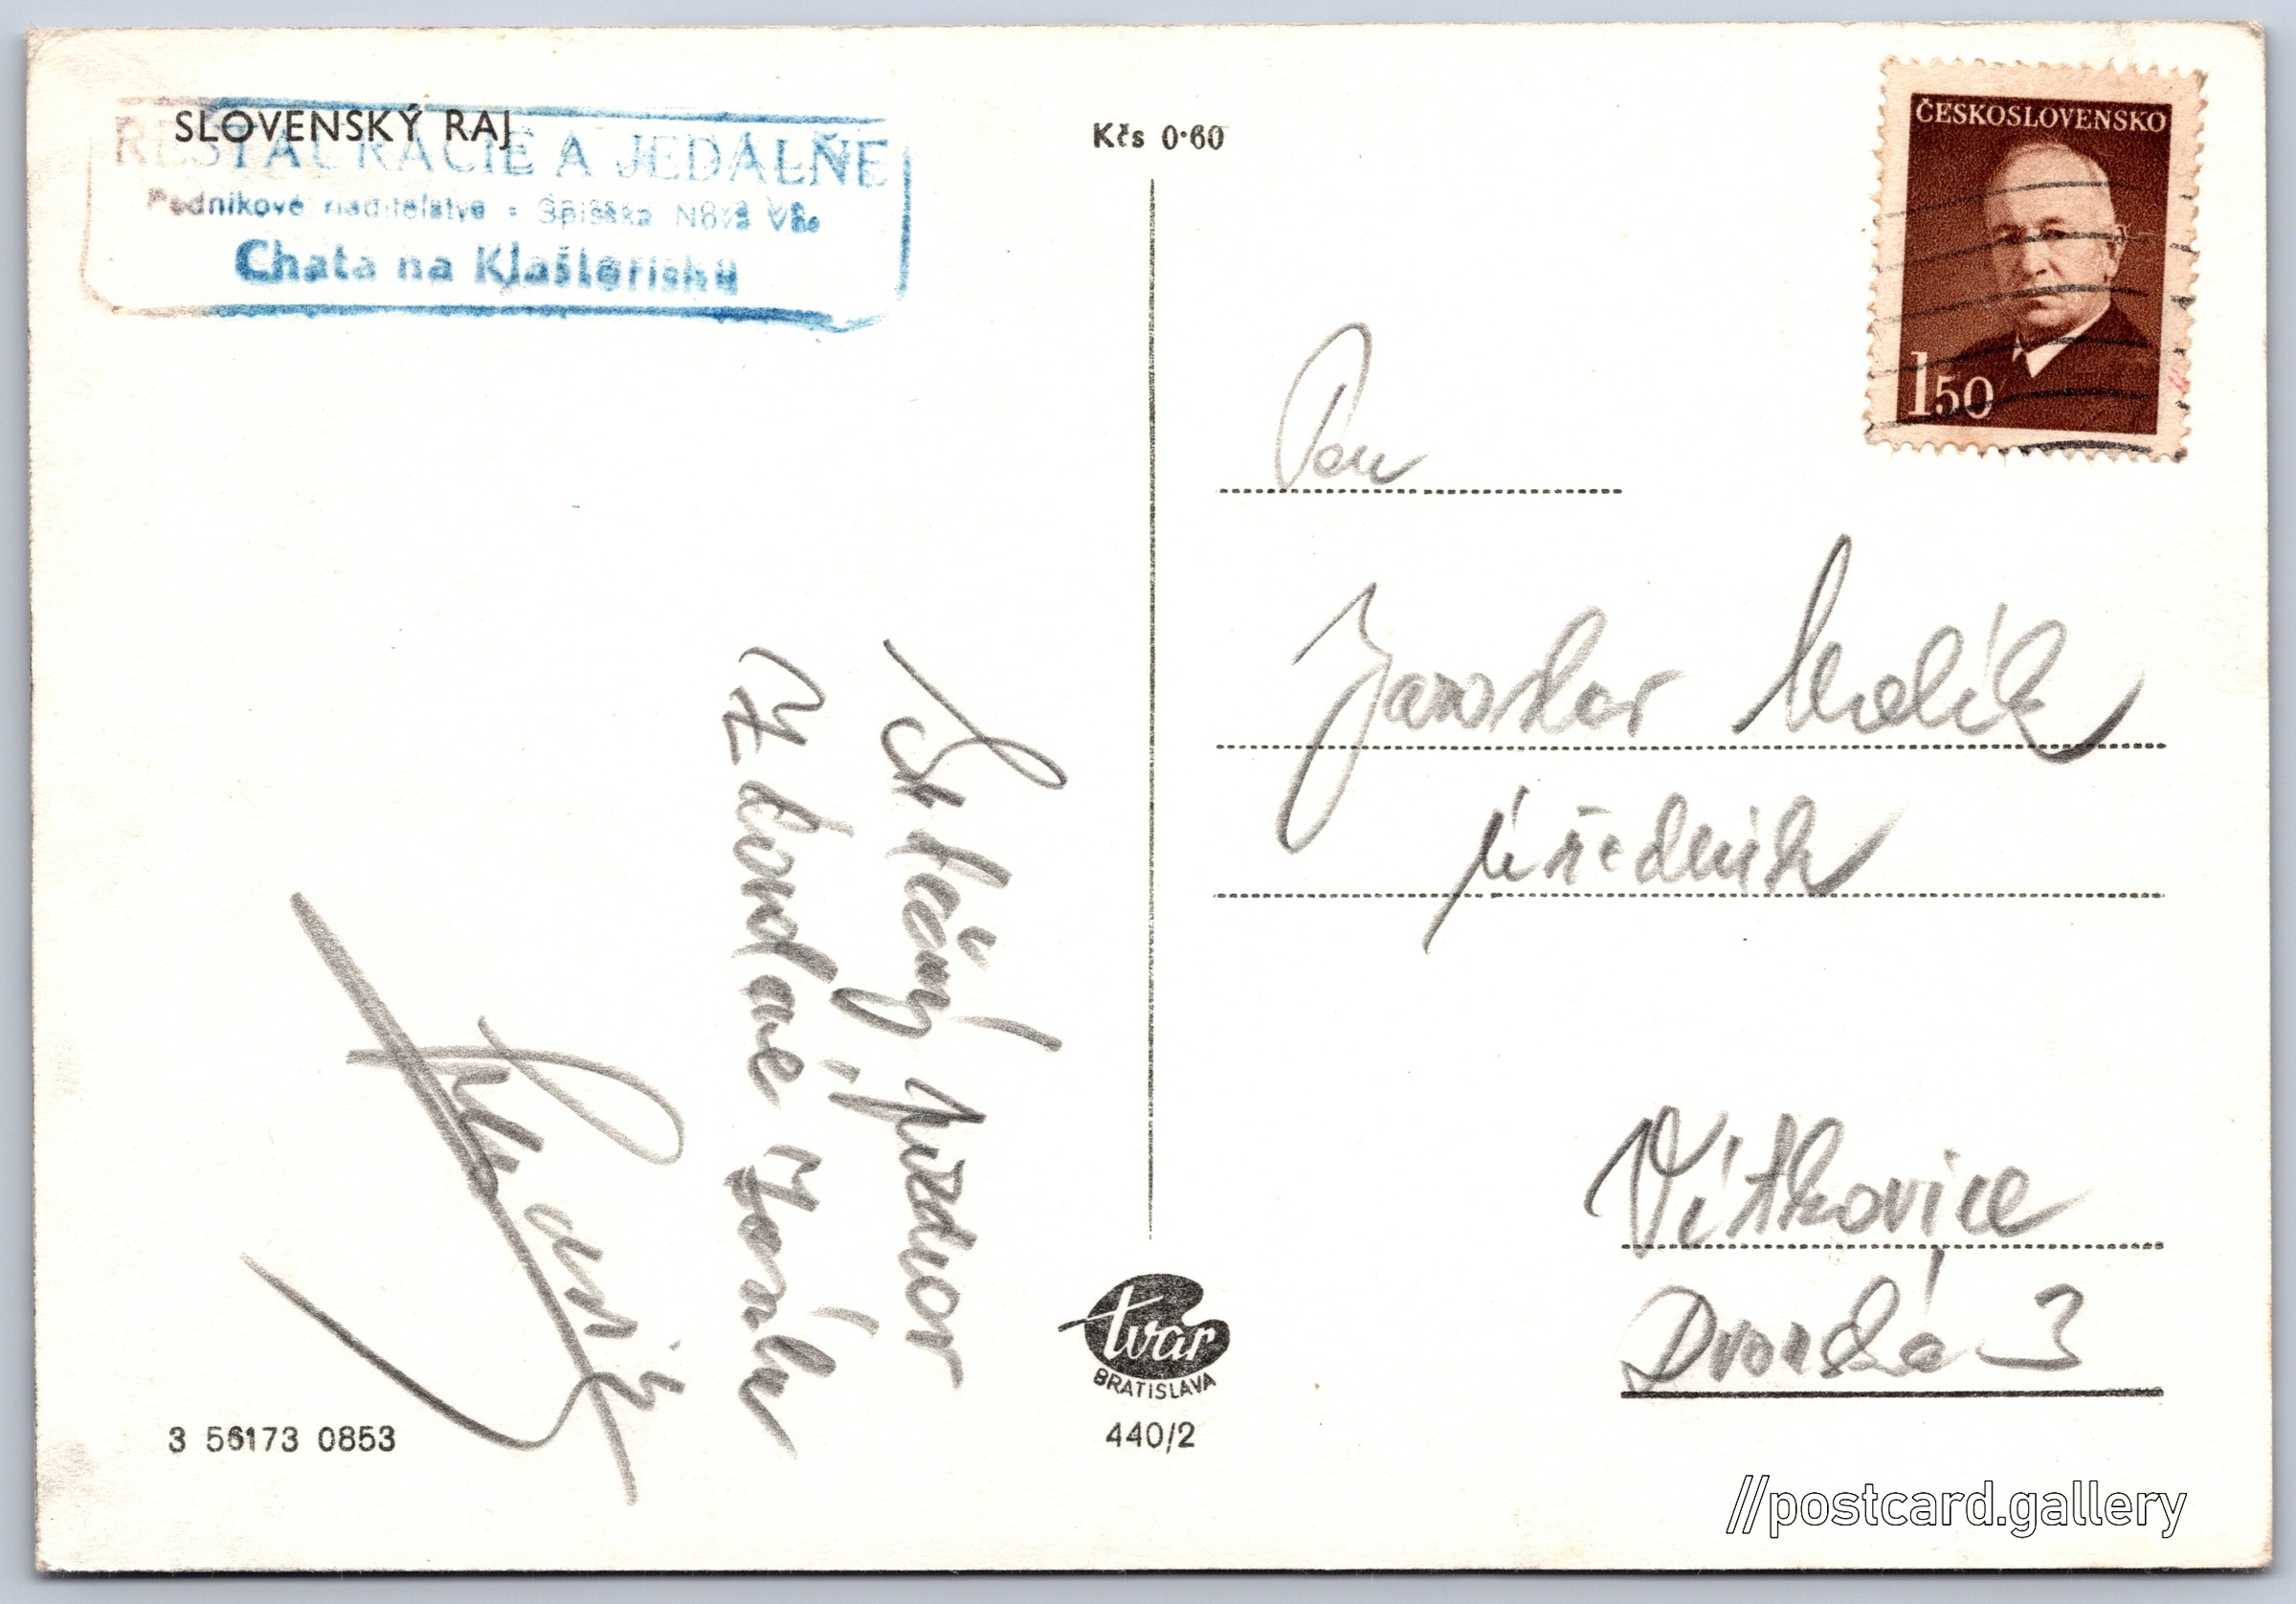 SLOVENSKÝ RAJ
REŠTAURÁCIE A JEDÁLŇE
Podnikové riaditeľstvo - Spišská Nová Ves
Chata na Kláštorisku
Kčs 0·60
ČESKOSLOVENSKO
1 50
Pan
Jaroslav
úředník
Vítkovice
Dvorská 3
Srdečný pozdrav
tvar
BRATISLAVA
440/2
3 56173 0853
//postcard.gallery